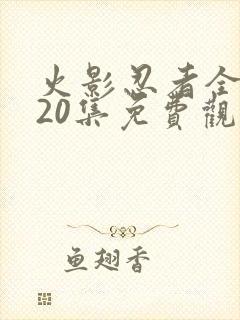 火影忍者全
20集免費觀
鱼翅香